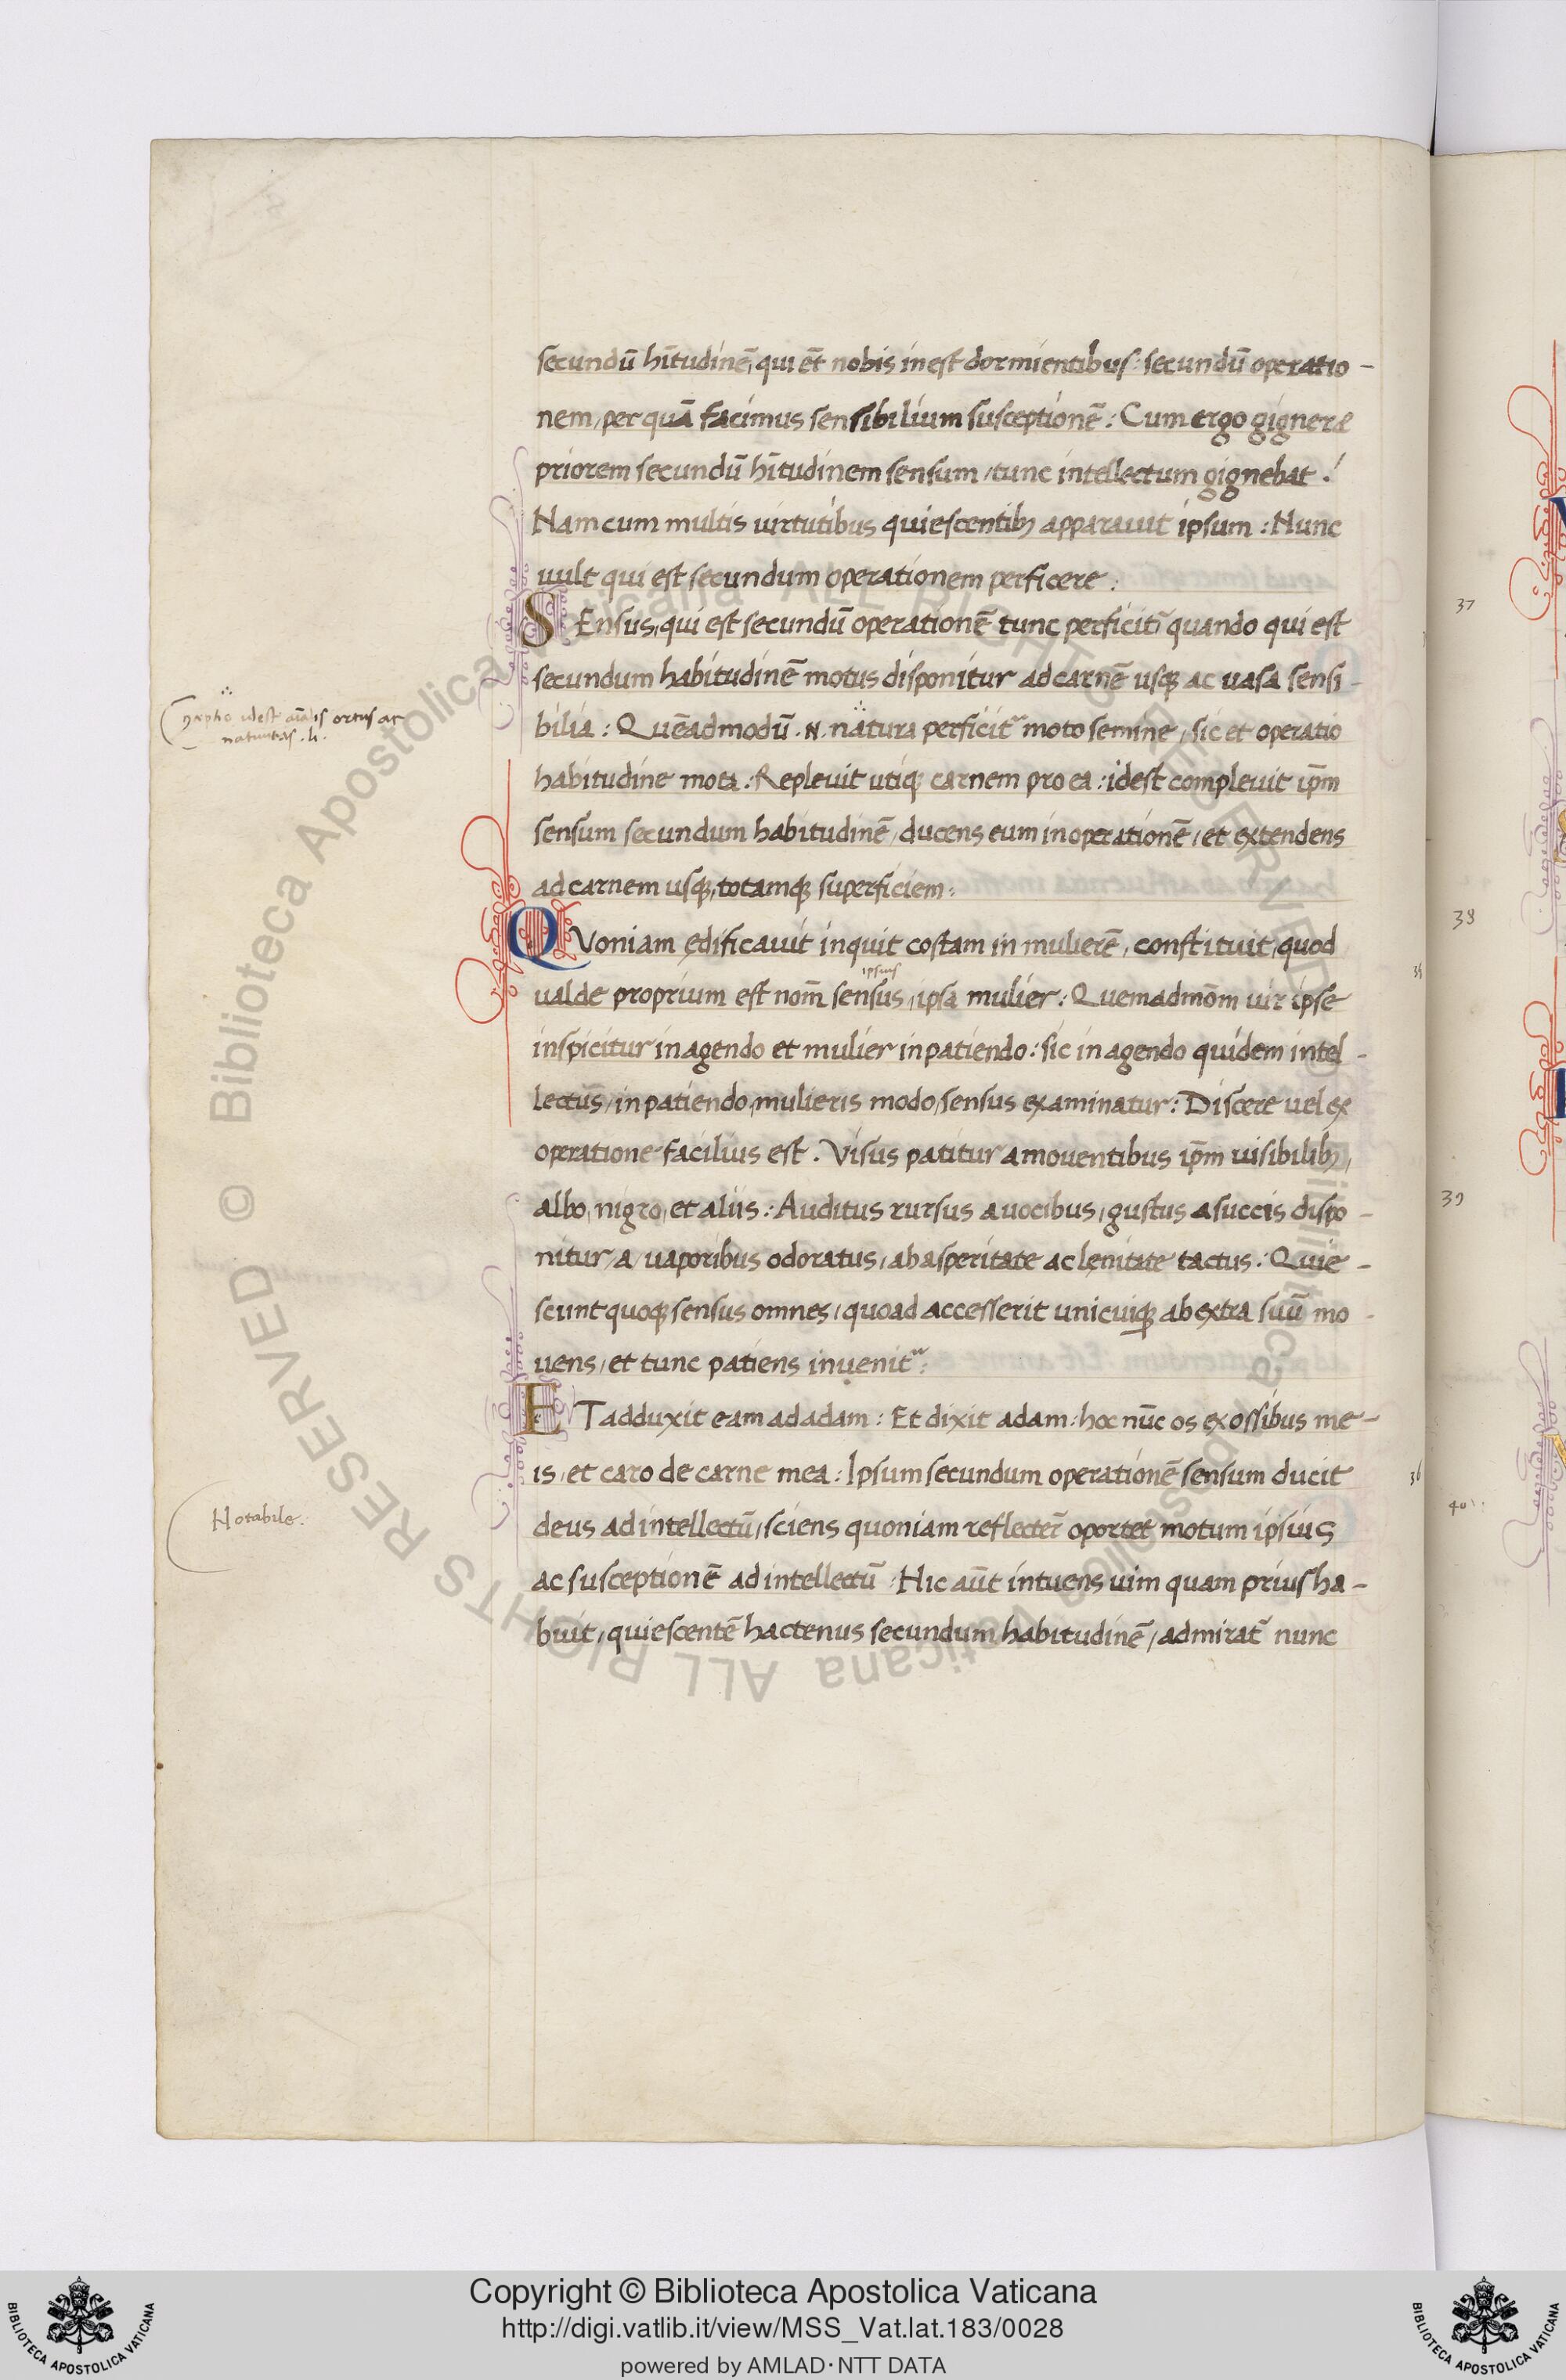 secundū hītudinē, qui ēt nobis inest dormientibus: secundū operatio-
nem, per quā facimus sensibilium susceptionē: Cum ergo gigneræ
priorem secundū hītudinem sensum, tunc intellectum gignebat!
Nam cum multis uirtutibus quiescentibꝫ apparauit ipsum: Nunc
uult qui est secundum operationem perficere:
SEnsus, qui est secundū operationē tunc perficit̄ quando qui est
secundum habitudinē motus disponitur ad carnē usqꝫ ac uasa sensi-
∴
gnptio idest aīalis ortus ac
natiuitas. li.
bilia: Quēadmodū .N. natura perficit̄ moto semine, sic et operatio
habitudine mota. Repleuit utiqꝫ carnem pro ea: idest compleuit ip̄m
sensum secundum habitudinē, ducens eum in operationē, et extendens
ad carnem usqꝫ, totamqꝫ superficiem:
QVoniam ędificauit inquit costam in mulierē, constituit, quod
ipsius
ualde proprium est nom̄ sensus, ipsa mulier: Quemadmōm uir ipse
35
inspicitur in agendo et mulier in patiendo: sic in agendo quidem intel-
lectus, in patiendo, mulieris modo, sensus examinatur: Discere uel ex
operatione facilius est. Visus patitur a mouentibus ip̄m uisibilibꝫ,
albo, nigro, et aliis: Auditus rursus a uocibus, gustus a succis dispo-
nitur, a, uaporibus odoratus, ab asperitate ac lenitate tactus: Quie-
scunt quoqꝫ sensus omnes, quoad accesserit unicuiqꝫ ab extra suū mo-
uens, et tunc patiens inuenit̄:
ETadduxit eam ad adam: Et dixit adam: hoc nūc os ex ossibus me-
is, et caro de carne mea: Ipsum secundum operationē sensum ducit
36
Notabile.
deus ad intellectū, sciens quoniam reflectet̄ oportet motum ipsius
ac susceptionē ad intellectū: Hic aūt intuens uim quam prius ha-
buit, quiescentē hactenus secundum habitudinē, admirat̄ nunc
37
38
39
40
Copyright © Biblioteca Apostolica Vaticana
http://digi.vatlib.it/view/MSS_Vat.lat.183/0028
powered by AMLAD·NTT DATA
BIBLIOTECA APOSTOLICA VATICANA
BIBLIOTECA APOSTOLICA VATICANA